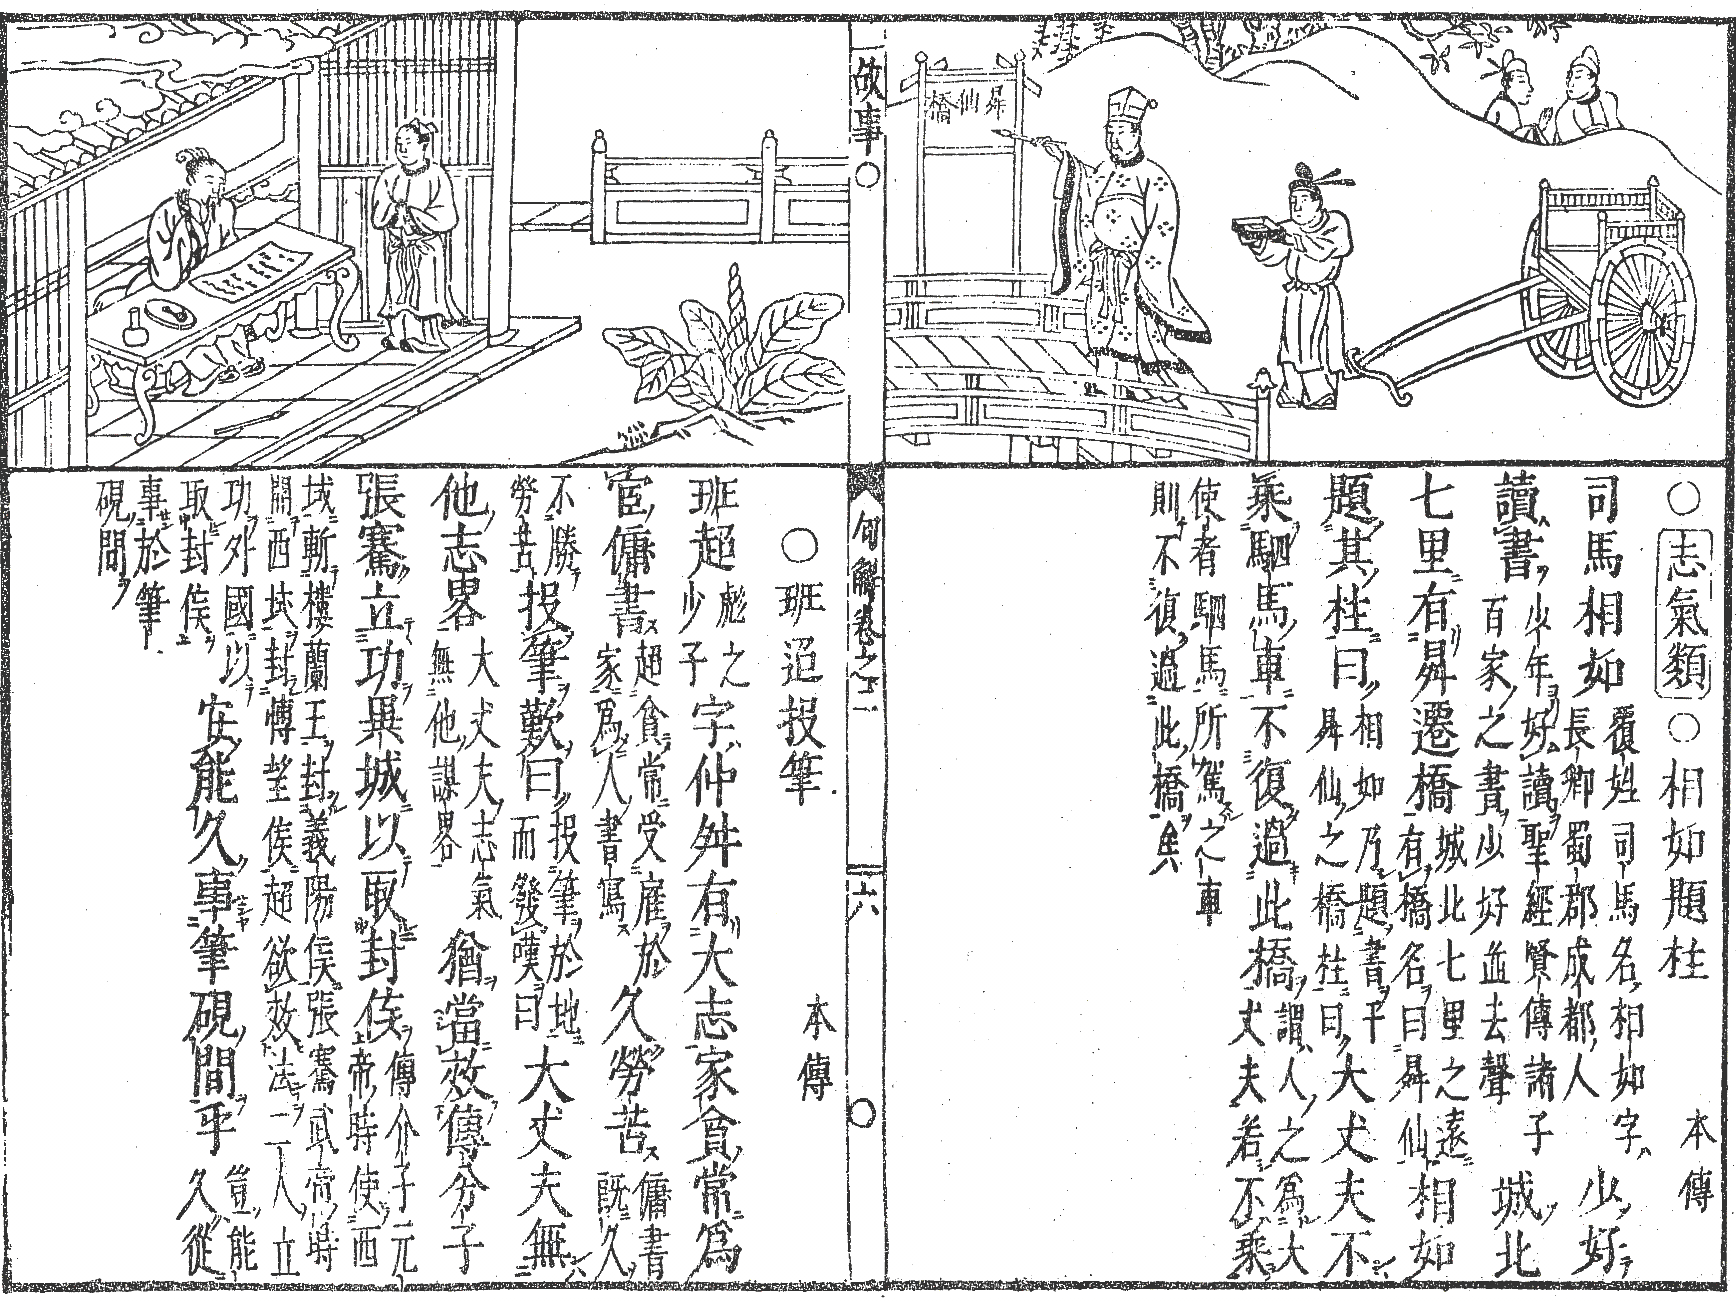 昇仙橋
○志氣類○相如題柱 本傳
司馬相如 覆姓司馬名相如字 長卿蜀郡成都人 少好
讀書 少年好讀聖經賢傳諸子 百家之書少好並去聲 城北
七里有昇遷橋 城北七里之遠 有橋名曰昇仙 相如
題其柱曰 相如乃題書于 昇仙之橋柱曰 大丈夫不
乘駟馬車不復過此橋 謂人之爲大 丈夫若不乘
使者駟馬所駕之車 則不復過此橋矣
故事○ 句解卷之 六 ○
○班超投筆 本傳
班超 彪之 少子 字仲舛有大志家貧常爲
官傭書 超貧常受雇於 家爲人書寫 久勞苦 傭書 既久
不勝 勞苦 投筆歎曰 投筆於地 而發嘆曰 大丈夫無
他志畧 大丈夫志氣 無他謀畧 猶當效傳介子
張騫立功異城以取封侯 傳介子元 帝時使西
域斬樓蘭王封義陽侯張騫武帝時 開西域封博望侯超欲效法二人立
功外國以 取封侯 安能久事筆硯間乎 豈能 久從
事於筆 硯間